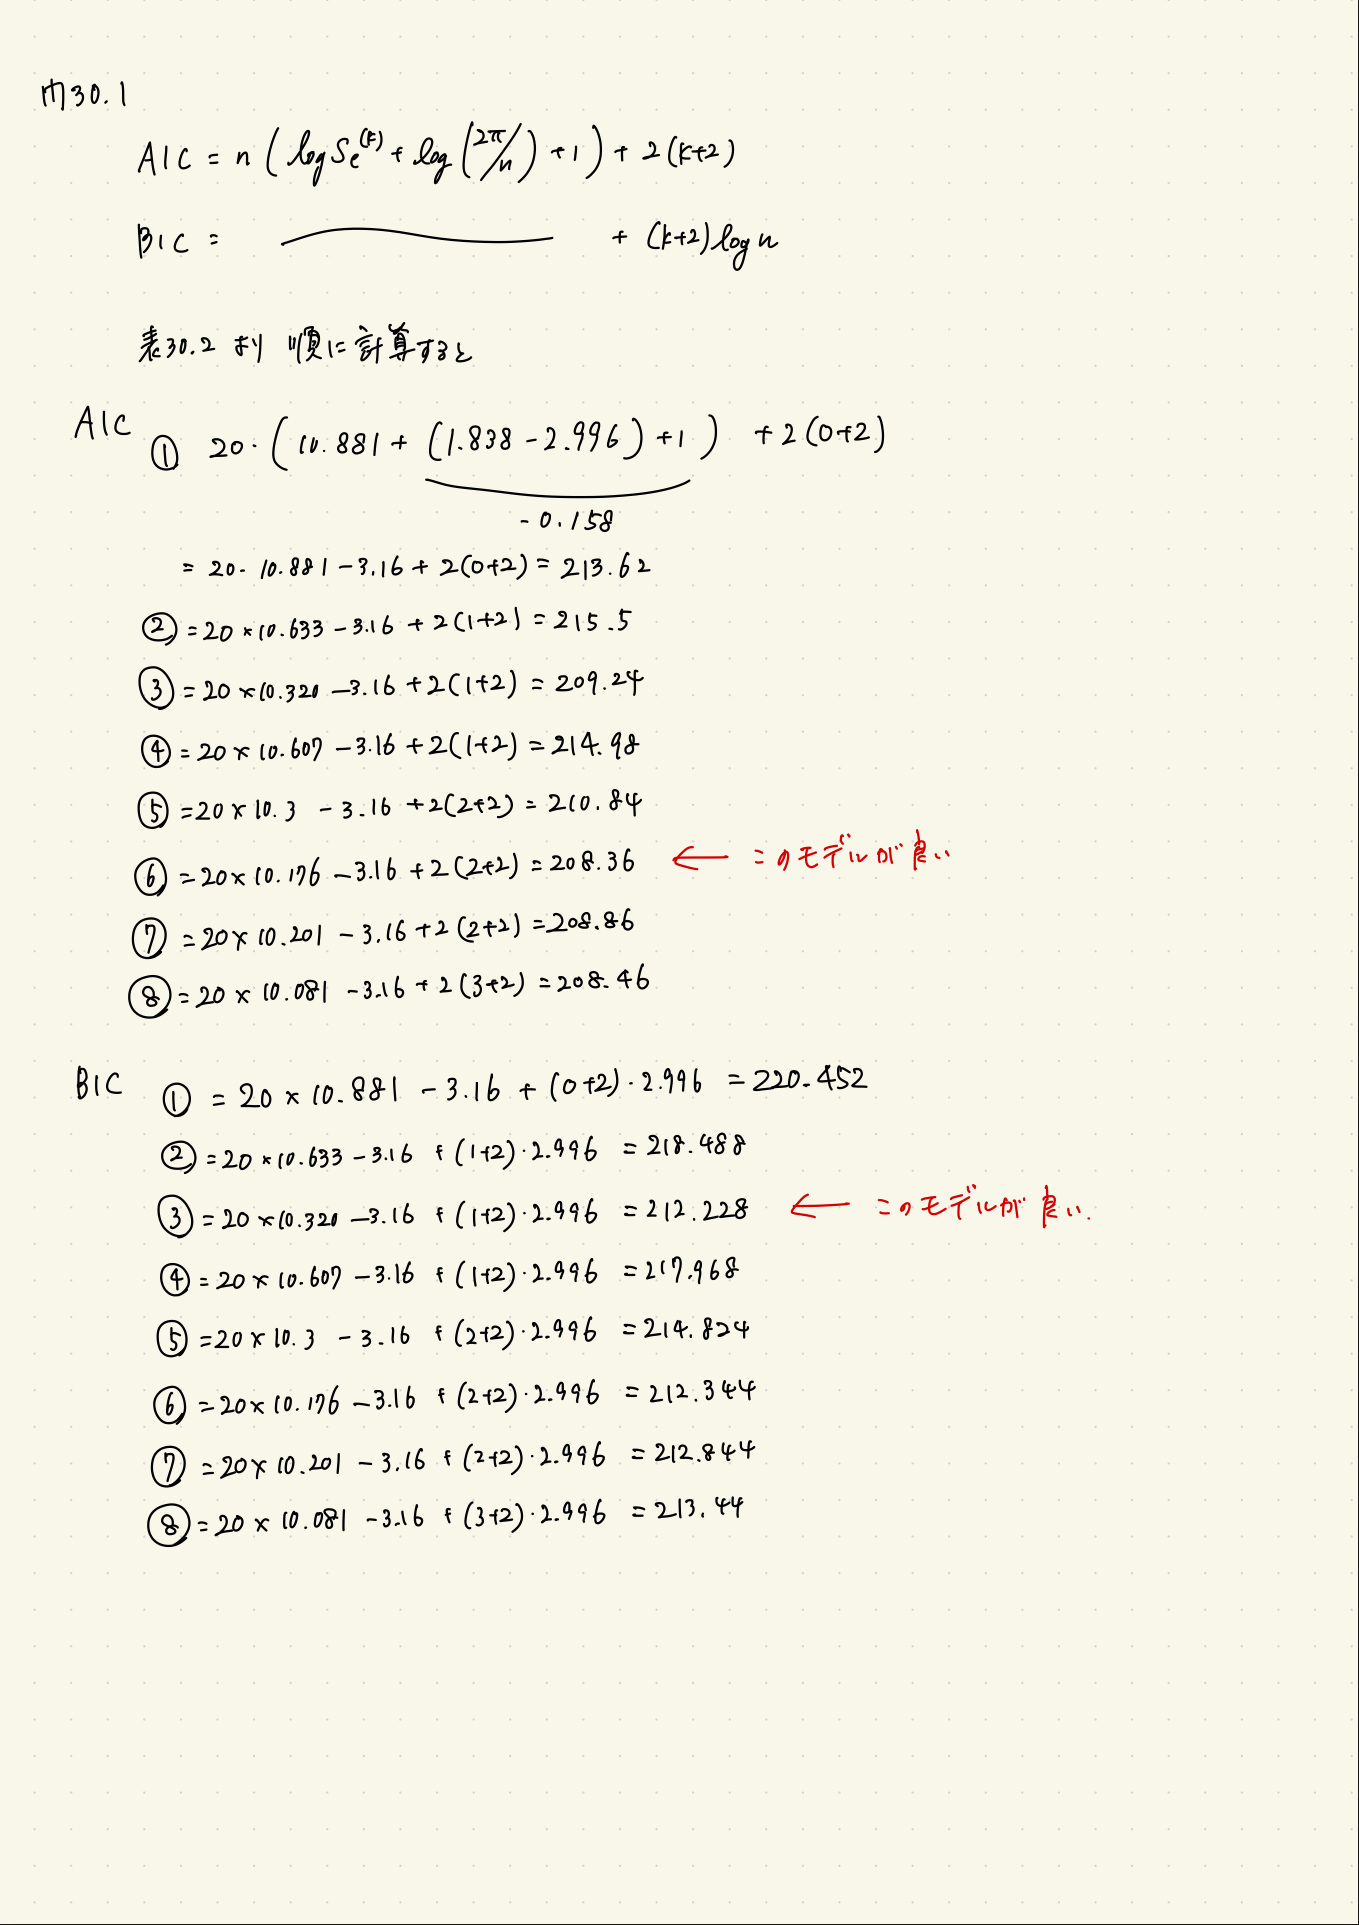 門30.1
AIC = n ( log Se^(k) + log (2π/n) + 1 ) + 2(k+2)
BIC = 〃 + (k+2) log n
表30.2 より 順に計算すると
AIC ① 20・( 10.881 + (1.838 - 2.996) + 1 ) + 2(0+2)
- 0.158
= 20・10.881 - 3.16 + 2(0+2) = 213.62
② = 20 × 10.633 - 3.16 + 2(1+2) = 215.5
③ = 20 × 10.320 - 3.16 + 2(1+2) = 209.24
④ = 20 × 10.607 - 3.16 + 2(1+2) = 214.98
⑤ = 20 × 10.3 - 3.16 + 2(2+2) = 210.84
⑥ = 20 × 10.176 - 3.16 + 2(2+2) = 208.36 ← このモデルが良い
⑦ = 20 × 10.201 - 3.16 + 2(2+2) = 208.86
⑧ = 20 × 10.081 - 3.16 + 2(3+2) = 208.46
BIC ① = 20 × 10.881 - 3.16 + (0+2)・2.996 = 220.452
② = 20 × 10.633 - 3.16 + (1+2)・2.996 = 218.488
③ = 20 × 10.320 - 3.16 + (1+2)・2.996 = 212.228 ← このモデルが良い.
④ = 20 × 10.607 - 3.16 + (1+2)・2.996 = 217.968
⑤ = 20 × 10.3 - 3.16 + (2+2)・2.996 = 214.824
⑥ = 20 × 10.176 - 3.16 + (2+2)・2.996 = 212.344
⑦ = 20 × 10.201 - 3.16 + (2+2)・2.996 = 212.844
⑧ = 20 × 10.081 - 3.16 + (3+2)・2.996 = 213.44